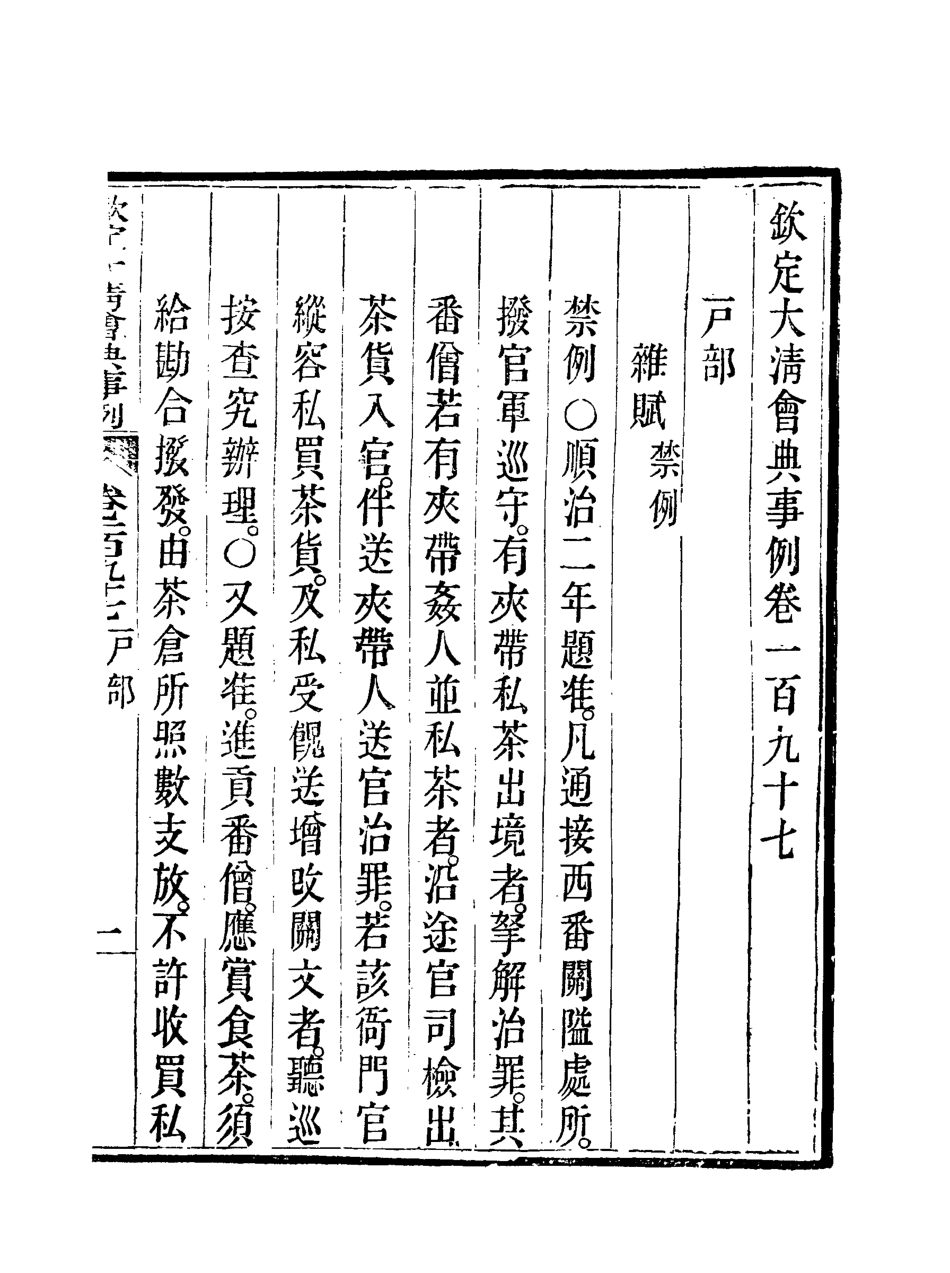 欽定大清會典事例卷一百九十七
戶部
雜賦禁例
禁例〇順治二年題准。凡通接西番關隘處所。
撥官軍巡守。有夾帶私茶出境者。拏解治罪。其
番僧若有夾帶姦人並私茶者。沿途官司檢出
茶貨入官。伴送夾帶人送官治罪。若該衙門官
縱容私買茶貨。及私受餽送增改關文者。聽巡
按查究辦理。〇又題准。進貢番僧。應賞食茶。須
給勘合撥發。由茶倉所照數支放。不許收買私
欽定大清會典事例 卷一百九十七戶部 一